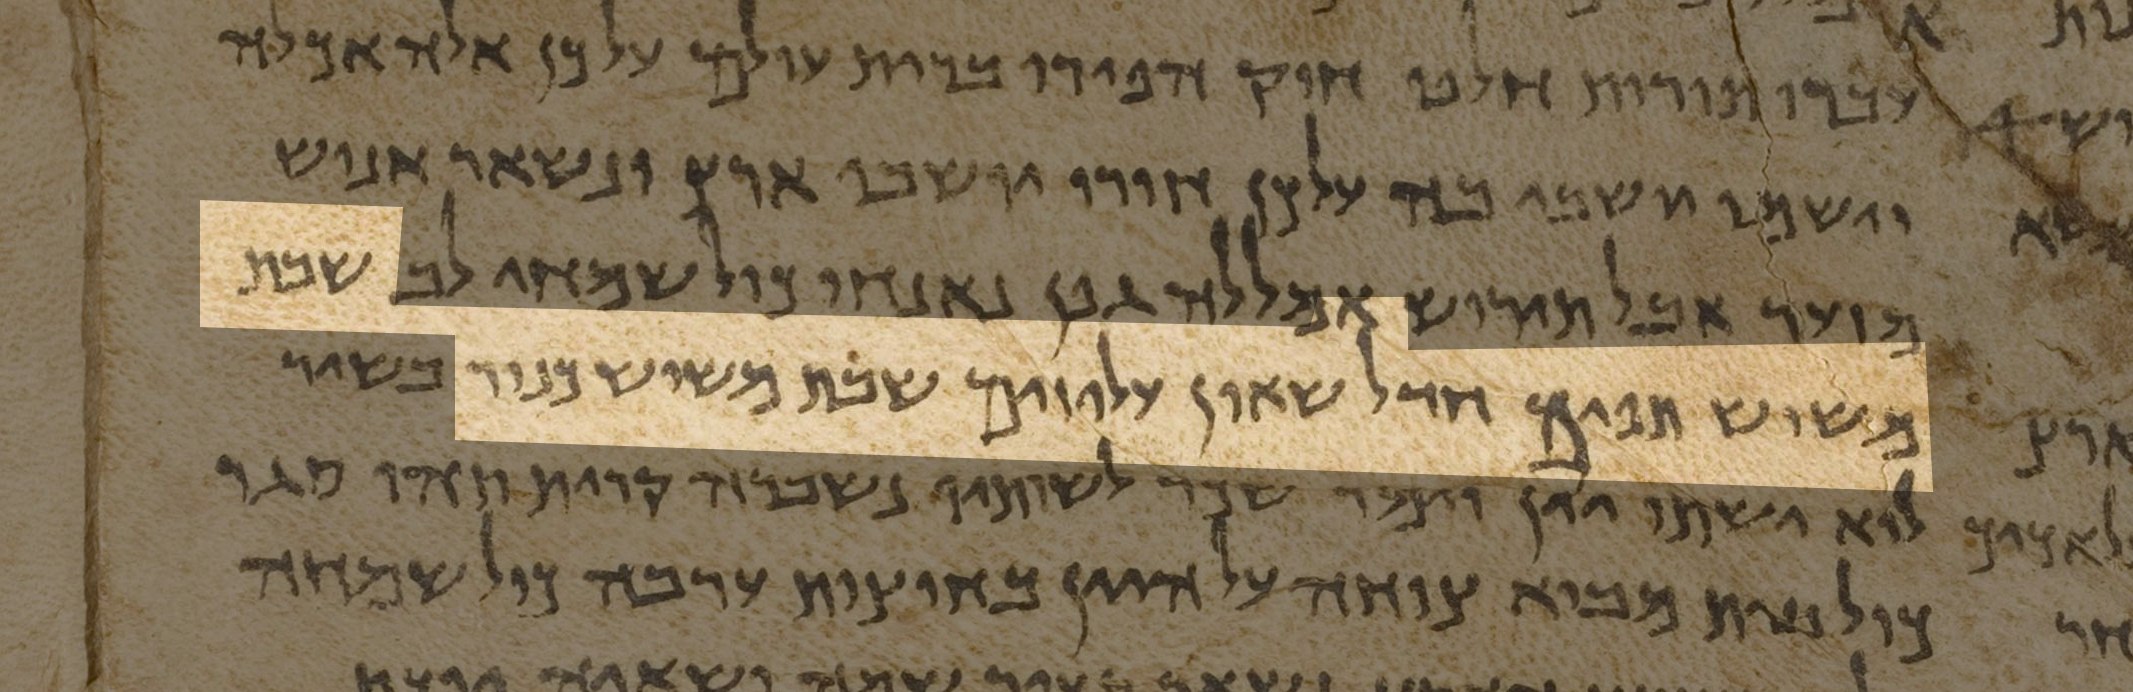 עברו תורות חלפו חוק הפירו ברית עולם על כן אלה אכלה
וישמו ישבי בה על כן חורו ישבי ארץ ונשאר אנוש
מזער אבל תירוש אמללה גפן נאנחו כול שמחי לב שבת
משוש תפים חדל שאון עליזים שבת משוש כנור בשיר
לוא ישתו יין וימר שכר לשותיו נשברה קרית תהו סגר
כול בית מבוא צוחה על היין בחוצות ערבה כול שמחה